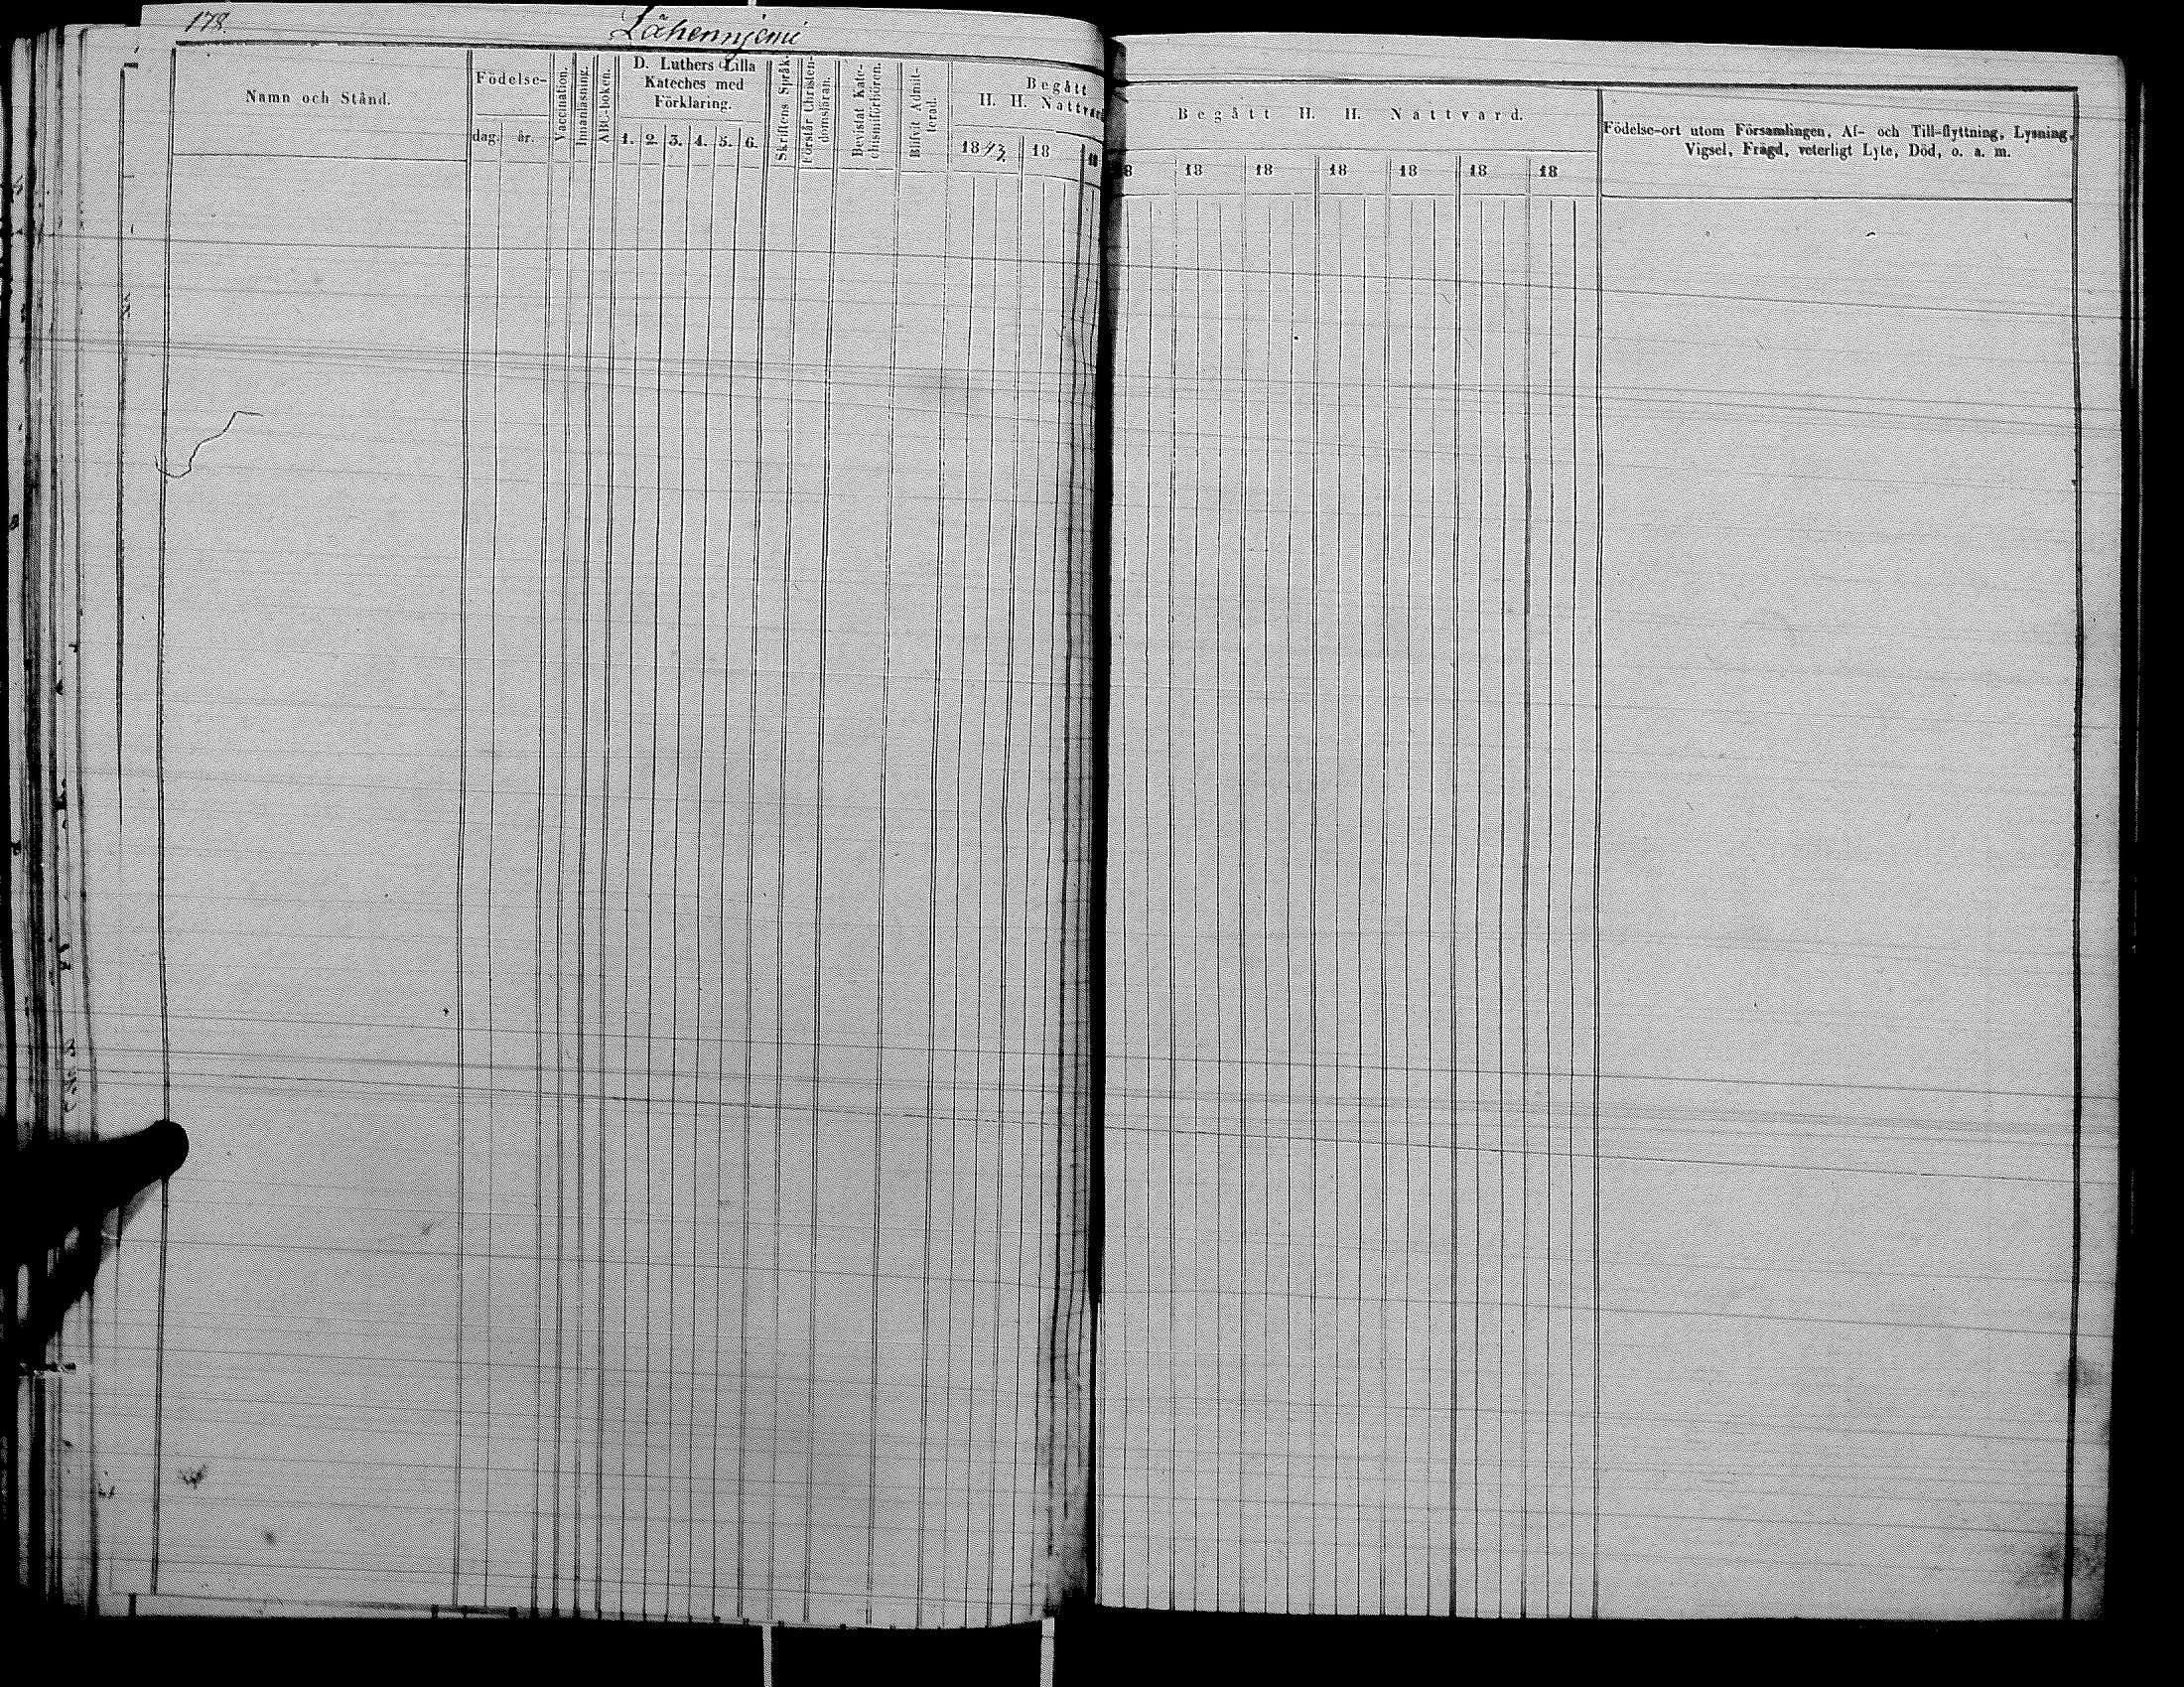 178.
Lähenniemi
Namn och Stånd.
Födelse-
dag. år.
Vaccination.
Innanläsning.
ABC-boken.
D. Luthers Lilla
Kateches med
Förklaring.
1. 2. 3. 4. 5. 6.
Skriftens Språk.
Förstår Christen-
domsläran.
Bevistat Kate-
chismiförhören.
Blifvit Admit-
terad.
Begått
H. H. Nattvard
1843 18 18
Begått H. H. Nattvard.
18 18 18 18 18 18 18
Födelse-ort utom Församlingen, Af- och Till-flyttning, Lysning,
Vigsel, Frägd, veterligt Lyte, Död, o. a. m.